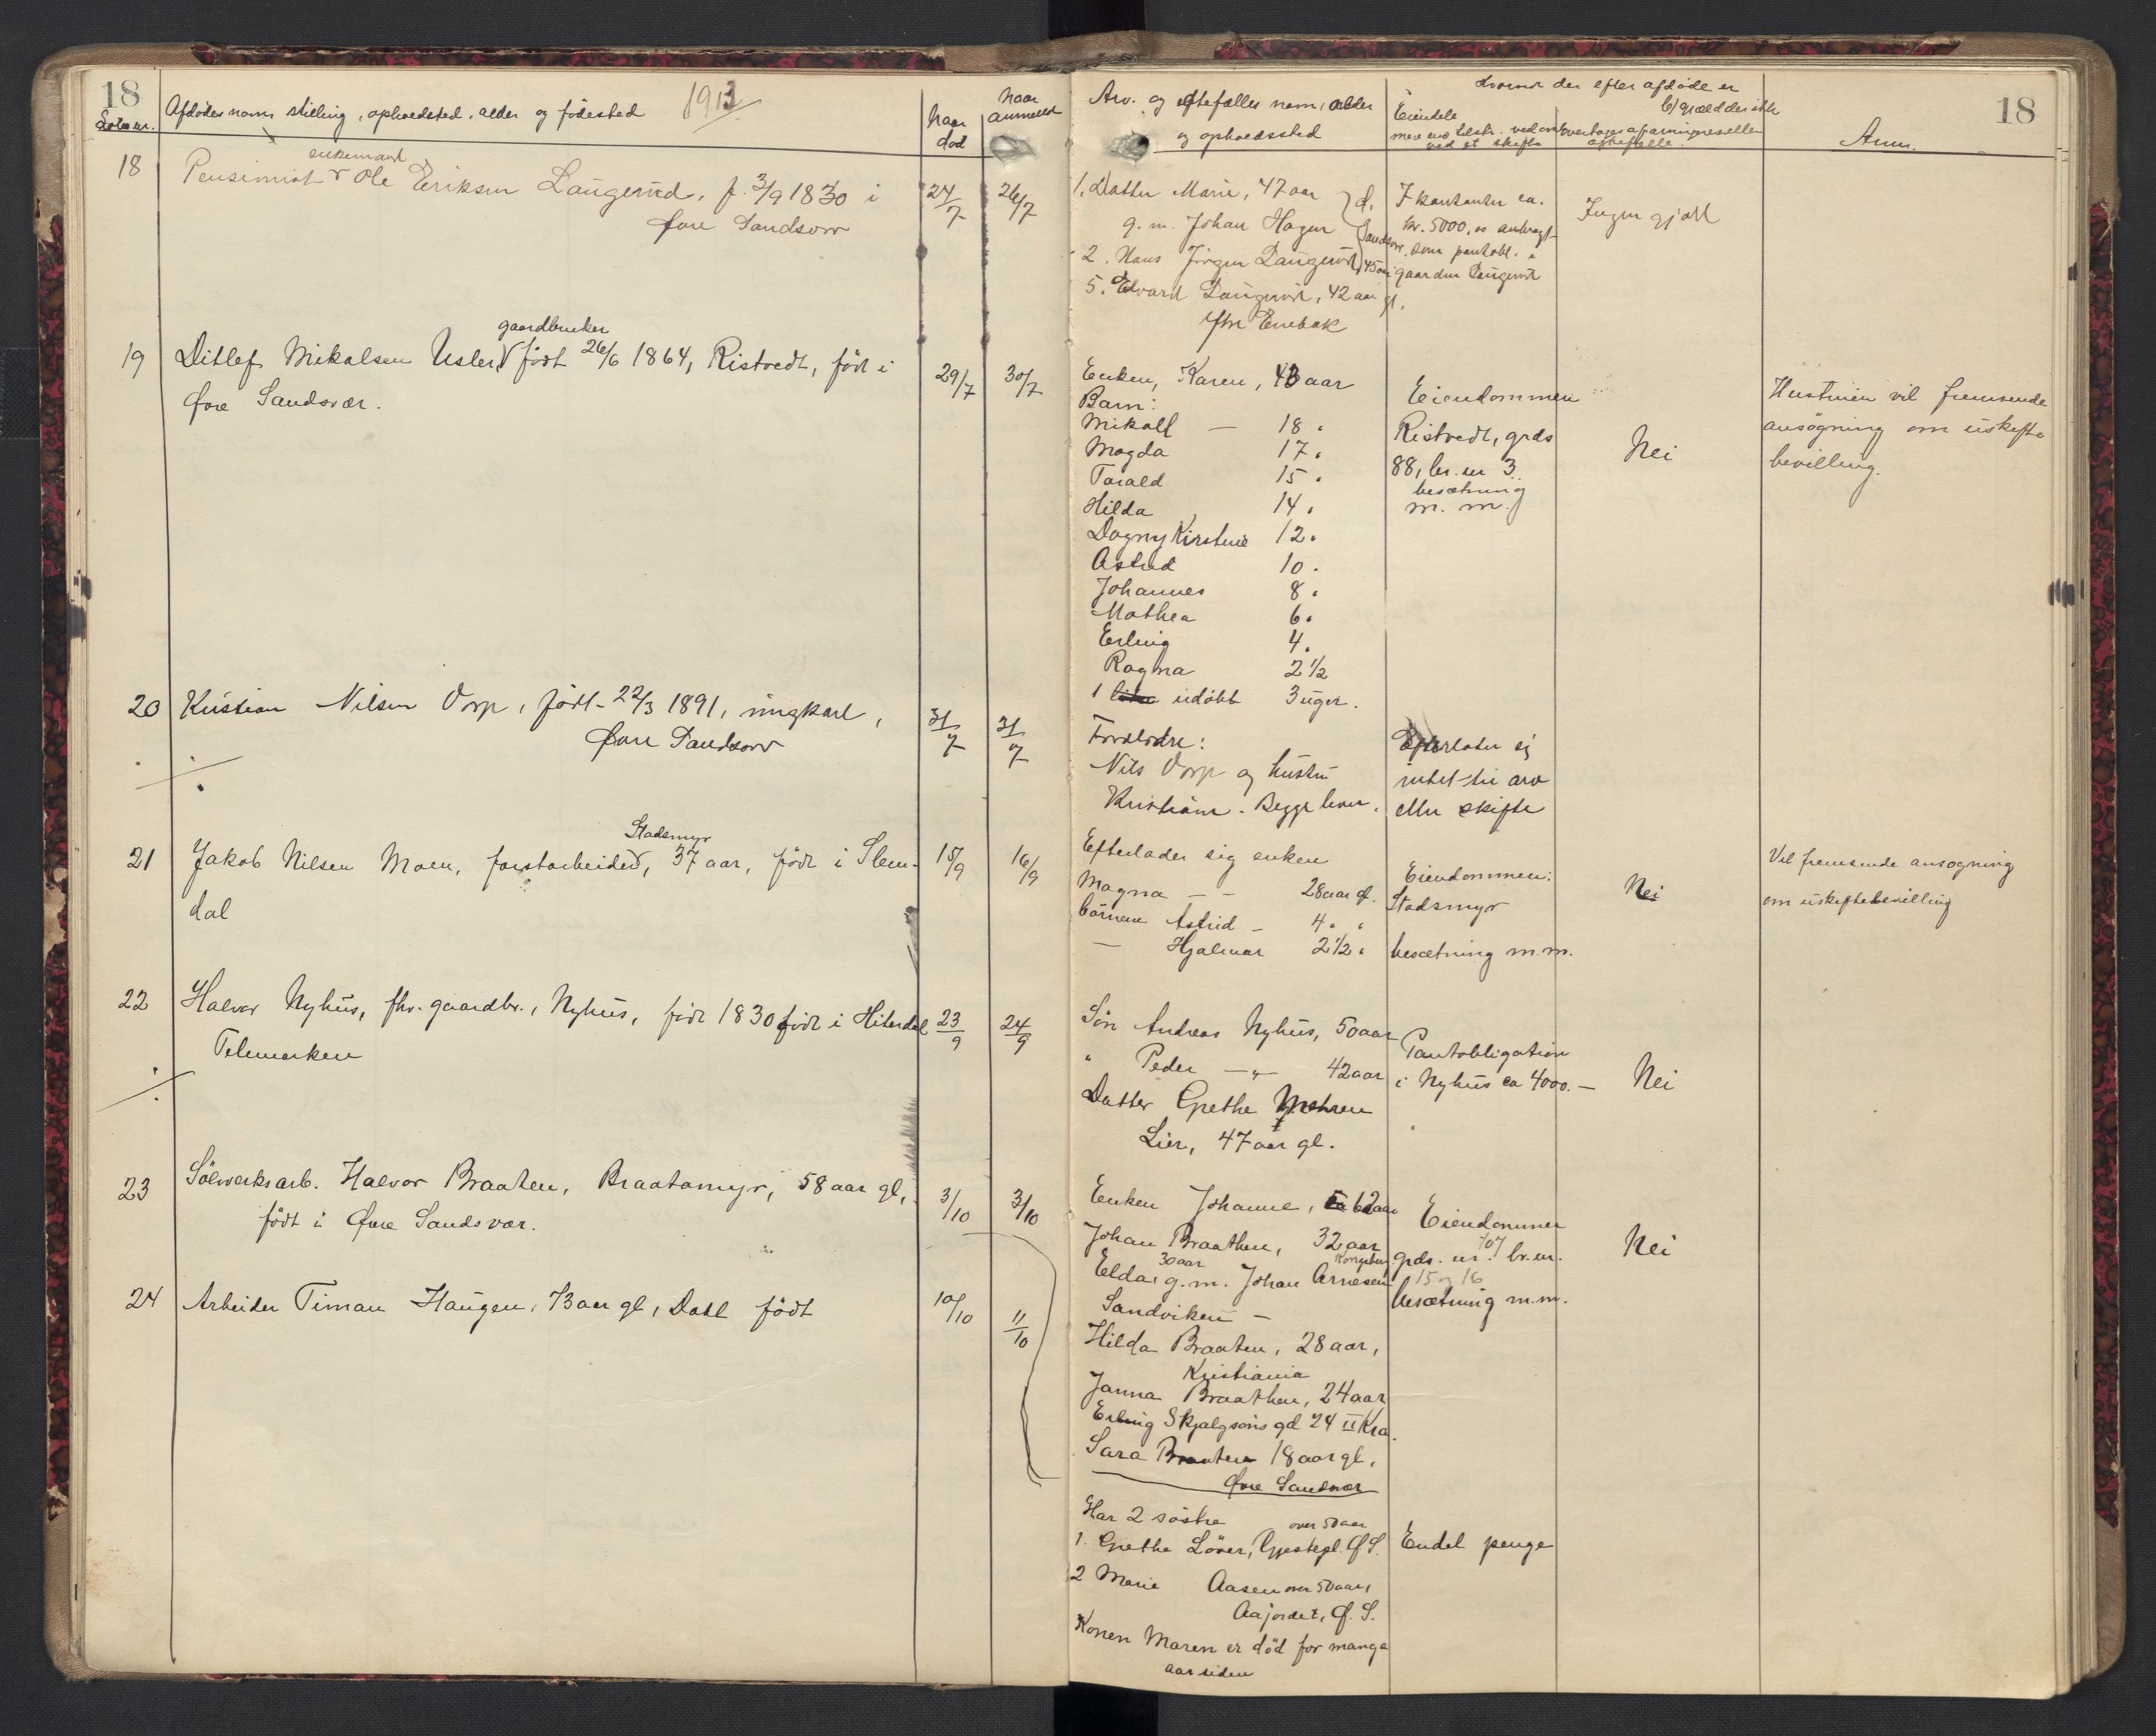 18
Løbe nr.
Afdødes navn stilling, opholdsted, alder og fødested
1913
Naar død
Naar anmeldt
18
enkemand
Pensionist Ole Eriksen Laugerud, f. 3/9 1830 i
Øvre Sandsvær
24/7
26/7
gaardbruker
19
Ditlef Mikalsen Usler, født 26/6 1864, Ristvedt, født i
Øvre Sandsvær.
29/7
30/7
20
Kristian Nilsen Vorp, født 22/3 1891, ungkarl,
Øvre Sandsvær
31/7
31/7
Stadsmyr
21
Jakob Nilsen Moen, forstarbeider, 37 aar, født i Slem-
dal
15/9
16/9
22
Halvor Nyhus, fhv. gaardbr., Nyhus, født 1830 født i Hiterdal
Telemarken
23/9
24/9
23
Sölvverksarb. Halvor Braaten, Braatamyr, 58 aar gl,
født i Øvre Sandsvær.
3/10
3/10
24
Arbeider Timan Haugen, 73 aar gl, Dahl født
10/10
11/10
18
Arv. og eftefølles navn, alder
og opholdssted
Hvorvidt der efter afdøde er
Eiendele
b) gjæld der ikke
ved et skifte
Anm.
1. Datter Marie, 47 aar
g. m. Johan Hagen
Ø. Sandsvær
2. Hans Jörgen Laugerud, 45 aar
5. Edvard Laugerud, 42 aar gl.
Øvre Enebak
I kontanter ca.
kr. 5000, er anbragt
som pantobl. i
gaarden Laugerud
Ingen gjæld
Enken, Karen, 43 aar
Barn:
Mikall — 18 "
Magda 17 "
Tarald 15 "
Hilda 14 "
Dagny Kirstine 12 "
Astrid 10 "
Johannes 8 "
Mathea 6 "
Erling 4 "
Ragna 2 1/2
1 udöbt 3 uger.
Eiendommen
Ristvedt, grds
88, br. nr 3
besætning
m. m.
Nei
Hustruen vil fremsende
ansögning om uskifte
bevilling.
Forældre:
Nils Vorp og hustru
Kristiane. Begge lever.
Efterlater sig
intet til arv
eller skifte
Efterlader sig enken
Magna — — 28 aar gl.
börnene Astrid — 4 " "
— Hjalmar 2 1/2 "
Eiendommen:
Stadsmyr
besætning m.m.
Nei
Vil fremsende ansøgning
om uskiftebevilling
Sön Andreas Nyhus, 50 aar
" Peder —"— 42 aar
Datter Grethe Mehren
Lier, 47 aar gl.
Pantobligation
i Nyhus ca 4000.—
Nei
Enken Johanne, 62 aar
Johan Braathen, 32 aar
Kongsberg
30 aar
Elda g. m. Johan Arnesen
Sandviken —
Hilda Braaten, 28 aar,
Kristiania
Janna Braathen, 24 aar
Erling Skjalgsöns gd 24 II Kra.
Sara Braaten 18 aar gl,
Øvre Sandsvær
Eiendommen
grds. nr. 107 br. nr.
15 og 16
besætning m.m.
Nei
Har 2 söstre
over 50 aar
1. Grethe Löver, Gjestepl. Ø. S.
2 Marie Aasen over 50 aar,
Aajordet, Ø. S.
Konen Maren er död for mange
aar siden
Endel penge